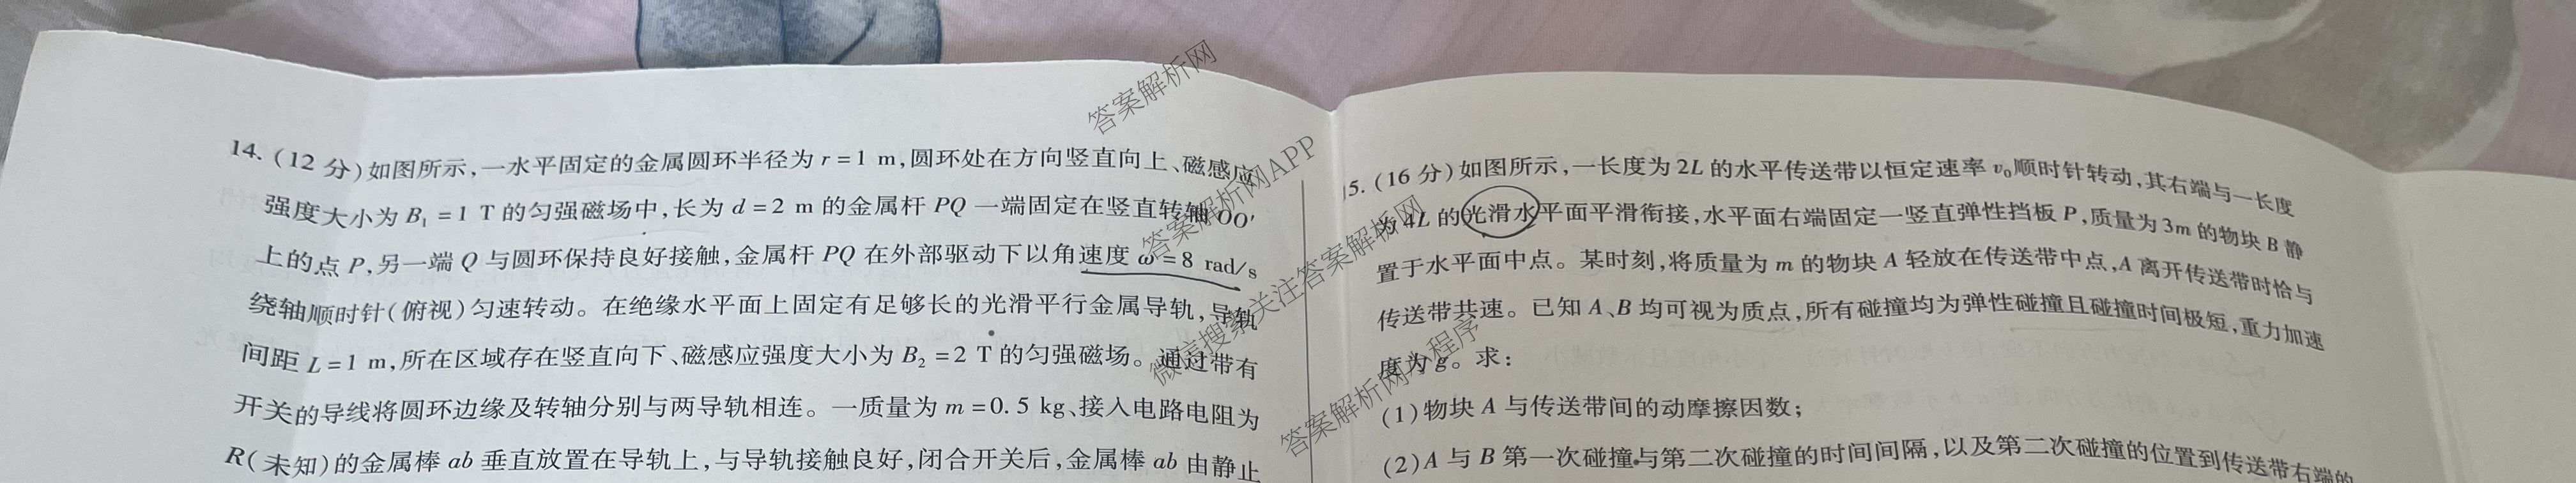 14. (12 分)如图所示,一水平固定的金属圆环半径为 r=1 m,圆环处在方向竖直向上、磁感应
强度大小为 B₁=1 T 的匀强磁场中,长为 d=2 m 的金属杆 PQ 一端固定在竖直转轴OO′
上的点 P,另一端 Q 与圆环保持良好接触,金属杆 PQ 在外部驱动下以角速度 ω=8 rad/s
绕轴顺时针(俯视)匀速转动。在绝缘水平面上固定有足够长的光滑平行金属导轨,导轨
间距 L=1 m,所在区域存在竖直向下、磁感应强度大小为 B₂=2 T 的匀强磁场。通过带有
开关的导线将圆环边缘及转轴分别与两导轨相连。一质量为 m=0.5 kg、接入电路电阻为
R(未知)的金属棒 ab 垂直放置在导轨上,与导轨接触良好,闭合开关后,金属棒 ab 由静止
15. (16 分)如图所示,一长度为 2L 的水平传送带以恒定速率 v₀顺时针转动,其右端与一长度
为 4L 的光滑水平面平滑衔接,水平面右端固定一竖直弹性挡板 P,质量为 3m 的物块 B 静
置于水平面中点。某时刻,将质量为 m 的物块 A 轻放在传送带中点,A 离开传送带时恰与
传送带共速。已知 A、B 均可视为质点,所有碰撞均为弹性碰撞且碰撞时间极短,重力加速
度为 g。求:
(1)物块 A 与传送带间的动摩擦因数;
(2)A 与 B 第一次碰撞与第二次碰撞的时间间隔,以及第二次碰撞的位置到传送带右端的
答案解析网
答案解析网APP
微信搜索关注答案解析网
答案解析网小程序